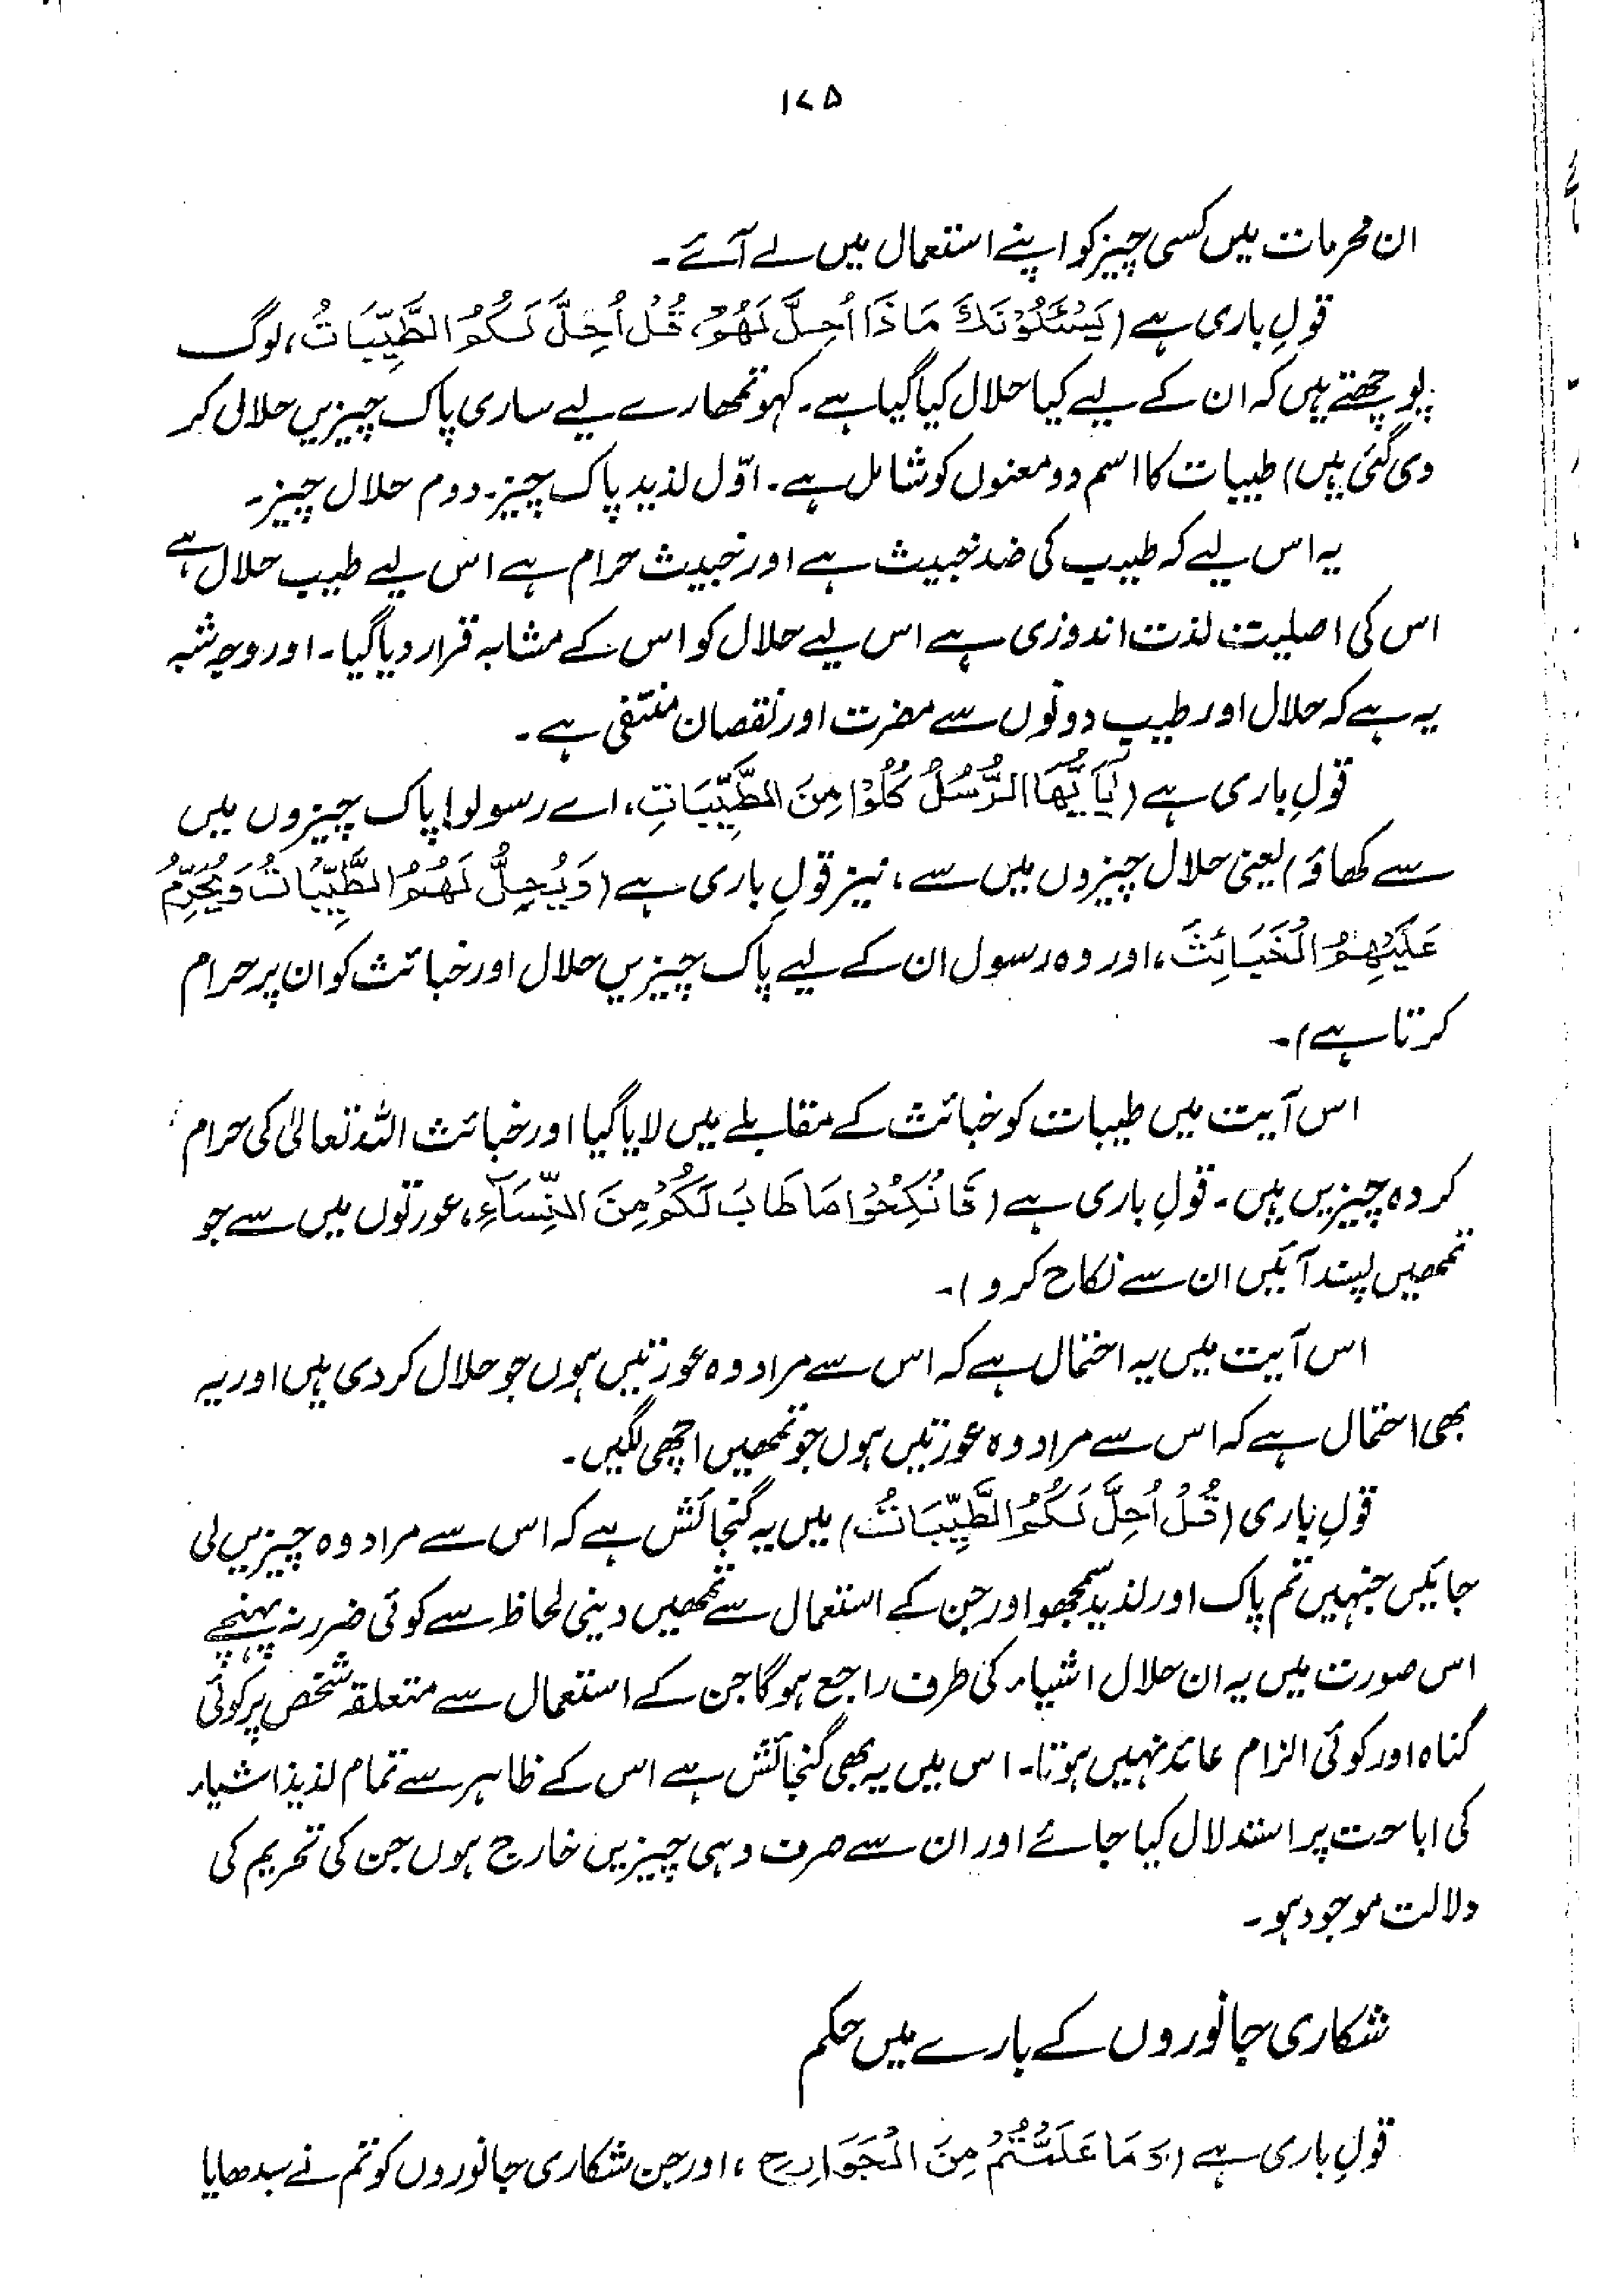 ۱۷۵
ان محرمات میں کسی چیز کو اپنے استعمال میں لے آئے۔
قولِ باری ہے (یَسْئَلُوْنَكَ مَاذَا اُحِلَّ لَهُمْ، قُلْ اُحِلَّ لَـکُمُ الطَّیِّبَاتُ، لوگ
پوچھتے ہیں کہ ان کے لیے کیا حلال کیا گیا ہے۔ کہو تمھارے لیے ساری پاک چیزیں حلال کر
دی گئی ہیں) طیبات کا اسم دو معنوں کو شامل ہے۔ اوّل لذیذ پاک چیز۔ دوم حلال چیز۔
یہ اس لیے کہ طیب کی ضد خبیث ہے اور خبیث حرام ہے اس لیے طیب حلال ہے
اس کی اصلیت لذت اندوزی ہے اس لیے حلال کو اس کے مشابہ قرار دیا گیا۔ اور وجہ شبہ
یہ ہے کہ حلال اور طیب دونوں سے مضرت اور نقصان منتفی ہے۔
قولِ باری ہے (یٰٓاَیُّهَا الرُّسُلُ کُلُوْا مِنَ الطَّیِّبَاتِ، اے رسولو! پاک چیزوں میں
سے کھاؤ) یعنی حلال چیزوں میں سے، نیز قولِ باری ہے (وَیُحِلُّ لَهُمُ الطَّیِّبَاتُ وَیُحَرِّمُ
عَلَیْهِمُ الْخَبَائِثَ، اور وہ رسول ان کے لیے پاک چیزیں حلال اور خبائث کو ان پر حرام
کرتا ہے)۔
اس آیت میں طیبات کو خبائث کے مقابلے میں لایا گیا اور خبائث اللہ تعالیٰ کی حرام
کردہ چیزیں ہیں۔ قولِ باری ہے (فَانْکِحُوْا مَا طَابَ لَکُمْ مِنَ النِّسَآءِ، عورتوں میں سے جو
تمھیں پسند آئیں ان سے نکاح کرو)۔
اس آیت میں یہ احتمال ہے کہ اس سے مراد وہ عورتیں ہوں جو حلال کر دی ہیں اور یہ
بھی احتمال ہے کہ اس سے مراد وہ عورتیں ہوں جو تمھیں اچھی لگیں۔
قولِ باری (قُـلْ اُحِلَّ لَـکُمُ الطَّیِّبَاتُ) میں یہ گنجائش ہے کہ اس سے مراد وہ چیزیں لی
جائیں جنہیں تم پاک اور لذیذ سمجھو اور جن کے استعمال سے تمھیں دینی لحاظ سے کوئی ضرر نہ پہنچے
اس صورت میں یہ ان حلال اشیاء کی طرف راجع ہوگا جن کے استعمال سے متعلقہ شخص پر کوئی
گناہ اور کوئی الزام عائد نہیں ہوتا۔ اس میں یہ بھی گنجائش ہے اس کے ظاہر سے تمام لذیذ اشیاء
کی اباحت پر استدلال کیا جائے اور ان سے صرف وہی چیزیں خارج ہوں جن کی تحریم کی
دلالت موجود ہو۔
شکاری جانوروں کے بارے میں حکم
قولِ باری ہے (وَمَا عَلَّمْتُمْ مِنَ الْجَوَارِحِ، اور جن شکاری جانوروں کو تم نے سدھایا